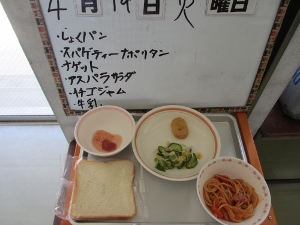 4月19日火曜日
・しょくパン
・スパゲティーナポリタン
・ナゲット
・アスパラサラダ
・イチゴジャム
・牛乳